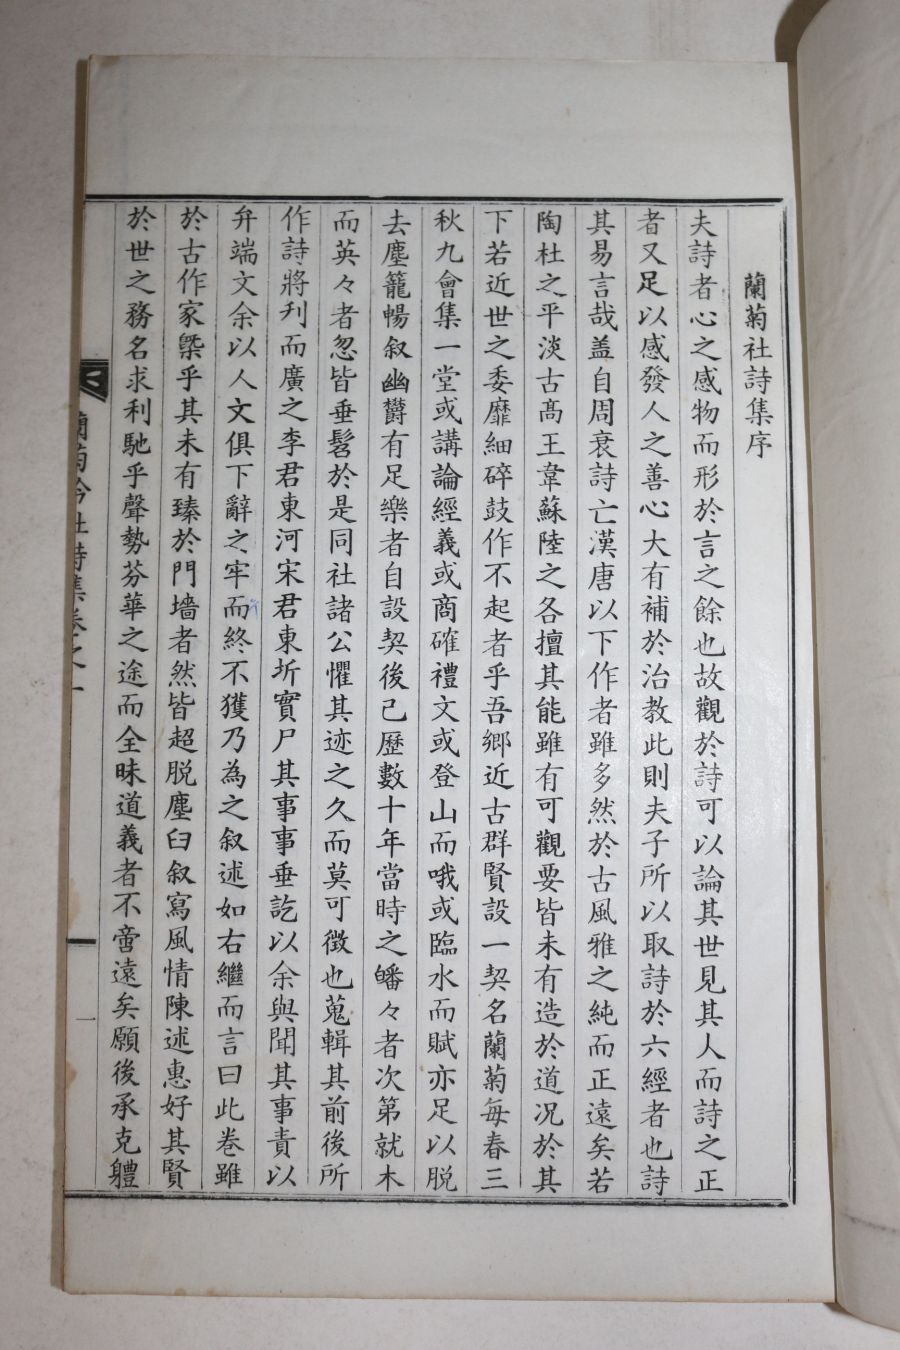 蘭菊社詩集序
夫詩者心之感物而形於言之餘也故觀於詩可以論其世見其人而詩之正
者又足以感發人之善心大有補於治教此則夫子所以取詩於六經者也詩
其易言哉盖自周衰詩亡漢唐以下作者雖多然於古風雅之純而正遠矣若
陶杜之平淡古髙王韋蘇陸之各擅其能雖有可觀要皆未有造於道况於其
下若近世之委靡細碎鼓作不起者乎吾鄉近古群賢設一契名蘭菊每春三
秋九會集一堂或講論經義或商確禮文或登山而哦或臨水而賦亦足以脱
去塵籠暢叙幽欝有足樂者自設契後已歷數十年當時之皤々者次第就木
而英々者忽皆垂髫於是同社諸公懼其迹之久而莫可徴也蒐輯其前後所
作詩將刋而廣之李君東河宋君東圻實尸其事事垂訖以余與聞其事責以
弁端文余以人文俱下辭之牢而終不獲乃為之叙述如右繼而言曰此巻雖
於古作家槩乎其未有臻於門墻者然皆超脱塵臼叙寫風情陳述惠好其賢
於世之務名求利馳乎聲勢芬華之途而全昧道義者不啻遠矣願後承克軆
蘭菊吟社詩集卷之一
一